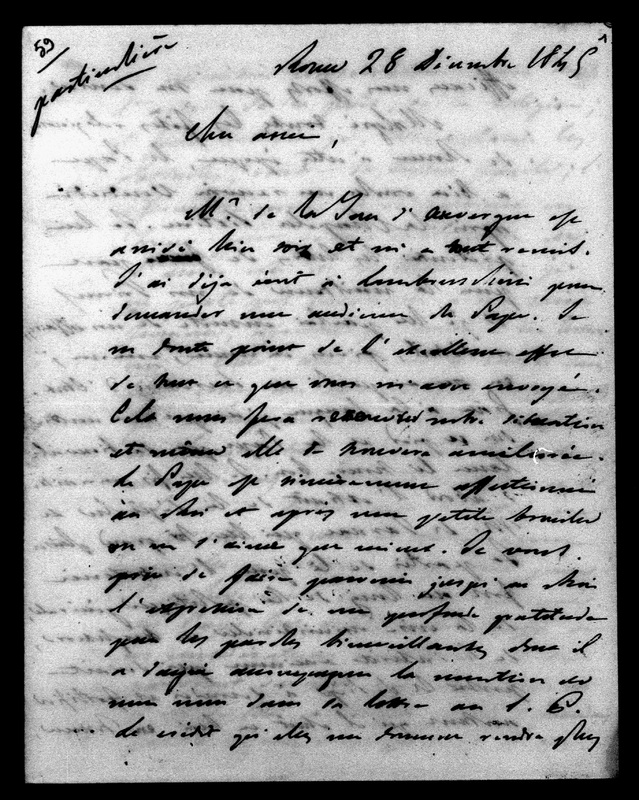 59
particulière
Rome 28 Décembre 1845
Cher ami,
Mr. de la Tour d'Auvergne est
arrivé hier soir et m'a tout remis.
J'ai déjà écrit à Lambruschini pour
demander une audience du Pape. Je
ne doute point de l'excellent effet
de tout ce que vous m'avez envoyé.
Cela nous fera notre situation
et même elle se trouvera améliorée.
Le Pape est sincèrement affectionné
au Roi et après une petite brouille
on ne s'aime que mieux. Je vous
prie de faire parvenir jusqu'au Roi
l'expression de ma profonde gratitude
pour les paroles bienveillantes dont il
a daigné accompagner la mention de
mon nom dans sa lettre au S. P.
Le crédit qu'elles me donnent rendra plus